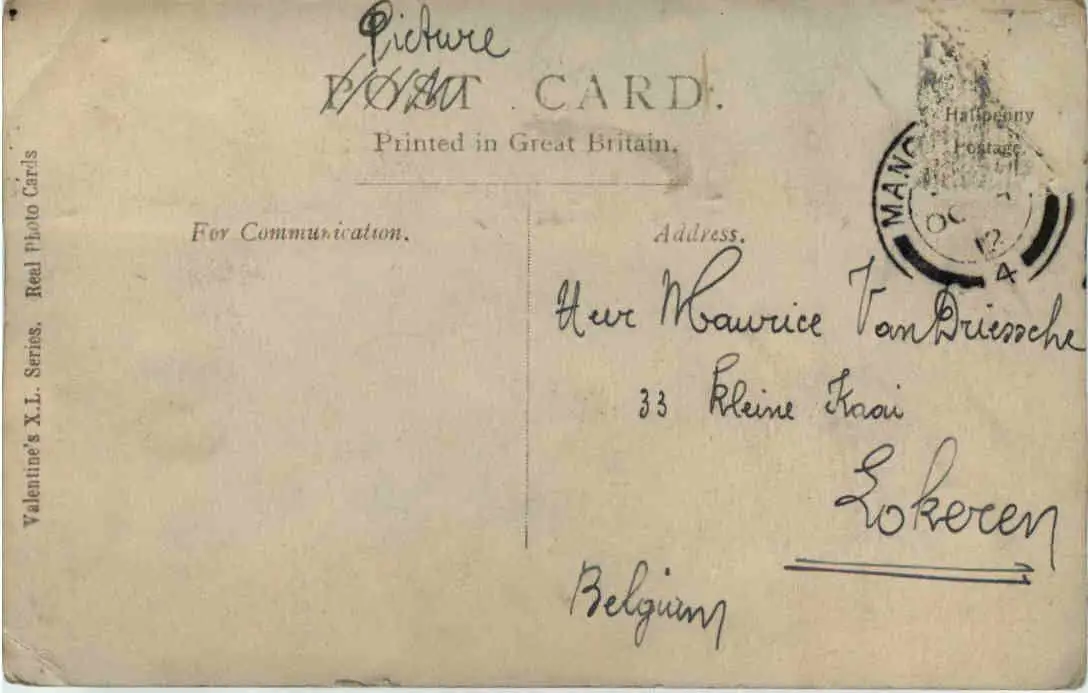 Picture
POST CARD.
Printed in Great Britain.
Halfpenny
Postage
MANC
OC
12
4
For Communication.
Address.
Valentine's X.L. Series. Real Photo Cards
Heer Maurice Van Driessche
33 Kleine Kaai
Lokeren
Belgium